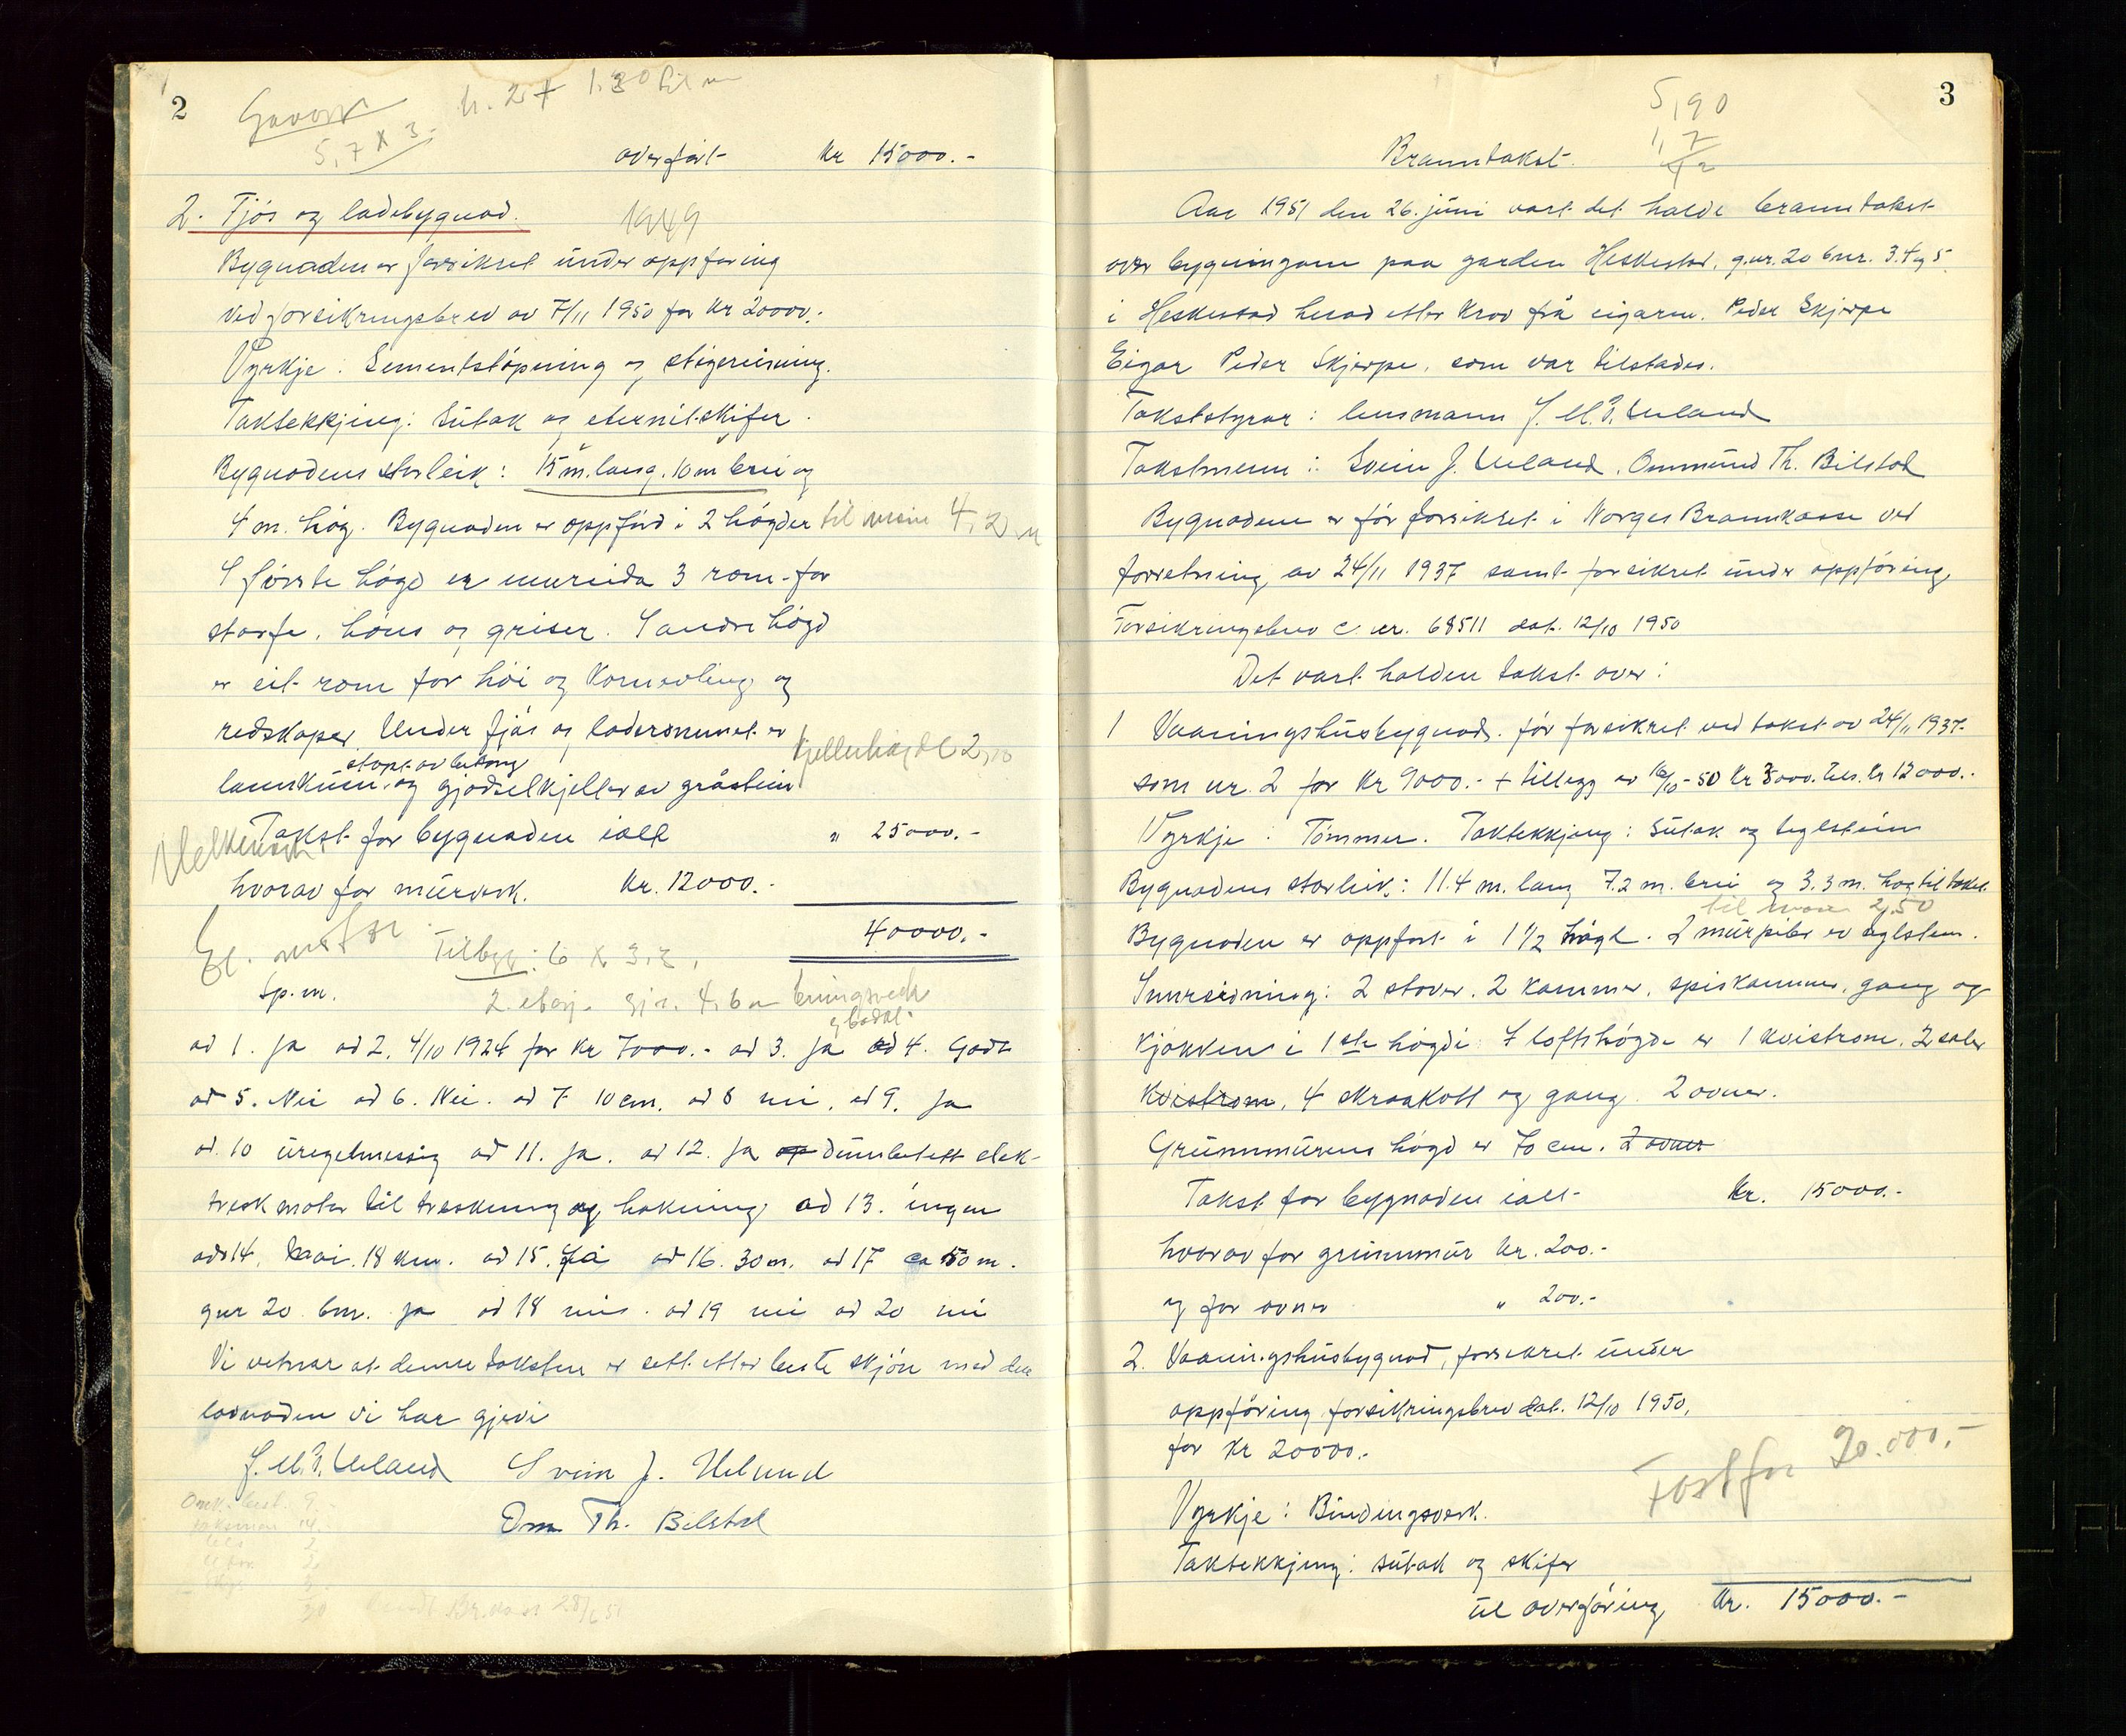 2
5,7 x 3
overført kr 15000.-
2. Fjös og ladebygnad. 1949
Bygnaden er forsikret under oppføring
ved forsikringsbrev av 7/11 1950 for kr 20000.-
Vyrkje: Sementstöpning og
Taktekkjing: Sutak og eternitskifer.
Bygnadens storleik: 15 m. lang. 10 m brei og
4 m. høg. Bygnaden er oppförd i 2 høgder til møne 4,2 m
I første høgd er innreida 3 rom for
storfe, höns og griser. I andre høgd
er eit rom for höi og kornavling og
redskaper. Under fjös og laderommet er Kjellerhøgde 2,
støpt av betong
landkum og gjødselkjeller av gråstein
Takst for bygnaden ialt " 25000.-
hvorav for murverk. Kr. 12000.-
40000.-
El. motor Tilbygg: 6 x 3,2
Sp.m. 2. etasj.
og badkl.
ad 1. Ja ad 2. 4/10 1924 for kr 7000.- ad 3. Ja ad 4. Godt
ad 5. Nei ad 6. Nei. ad 7 10 cm. ad 8 nei. ad 9. Ja
ad. 10 uregelmessig ad 11. Ja. ad 12. Ja elek-
trisk motor til treskning og hakning ad 13. ingen
ad 14. 18 km. ad 15. Ja ad 16. 30 m. ad 17 ca 50 m.
gnr 20 bnr. ad 18 nei. ad 19 nei ad 20 nei
Vi vitnar at denne taksten er sett etter beste skjön med den
lovnaden vi har gjevi
J. M. Ueland Svein J. Ueland
Om Th. Bilstad
3
5,90
1,7
Branntakst.
Aar 1951 den 26. juni vart det halde branntakst
over bygningane paa garden Heskestad, g.nr. 20 bnr. 3.4 og 5.
i Heskestad herad etter krav frå eigaren. Peder Skjerpe
Eigar Peder Skjerpe, som var tilstades.
Takststyrar: lensmann J. M. Ueland
Takstmenn: Svein J. Ueland, Ommund Th. Bilstad
Bygnadene er för forsikret i Norges Brannkasse ved
forretning av 24/11 1937 samt forsikret under oppföring,
Forsikringsbrev C. nr. 68511 dat. 12/10 1950
Det vart halden takst over:
1 Vaaningshusbygnad. för forsikret ved takst av 24/11 1937.
som nr. 2 for kr 9000.- + tillegg av 16/10-50 kr 3000. tils. kr 12000.-
Vyrkje: Tömmer. Taktekkjing: Sutak og teglstein
Bygnadens storleik: 11.4 m. lang 7.2 m. brei og 3.3 m. høg til taket.
til møne 2,50
Bygnaden er oppfört i 1 1/2 høgd. 2 murpiber av teglstein.
Innreidning: 2 stover. 2 kammer, spiskammer, gang og
kjøkken i 1ste høgdi. I loftshøgde er 1 kvistrom. 2 saler
kvistrom, 4 skraakott og gang. 2 ovner.
Grunnmurens høgd er 70 cm. 2 ovner
Takst for bygnaden ialt Kr. 15000.-
hvorav for grunnmur kr. 200.-
og for ovner " 200.-
2. Vaaningshusbygnad, forsikret under
oppföring forsikringsbrev dat. 12/10 1950,
for kr 20000.-
Tøst for 20.000,-
Vyrkje: Bindingsverk.
Taktekkjing: sutak og skifer
til overföring Kr. 15000.-